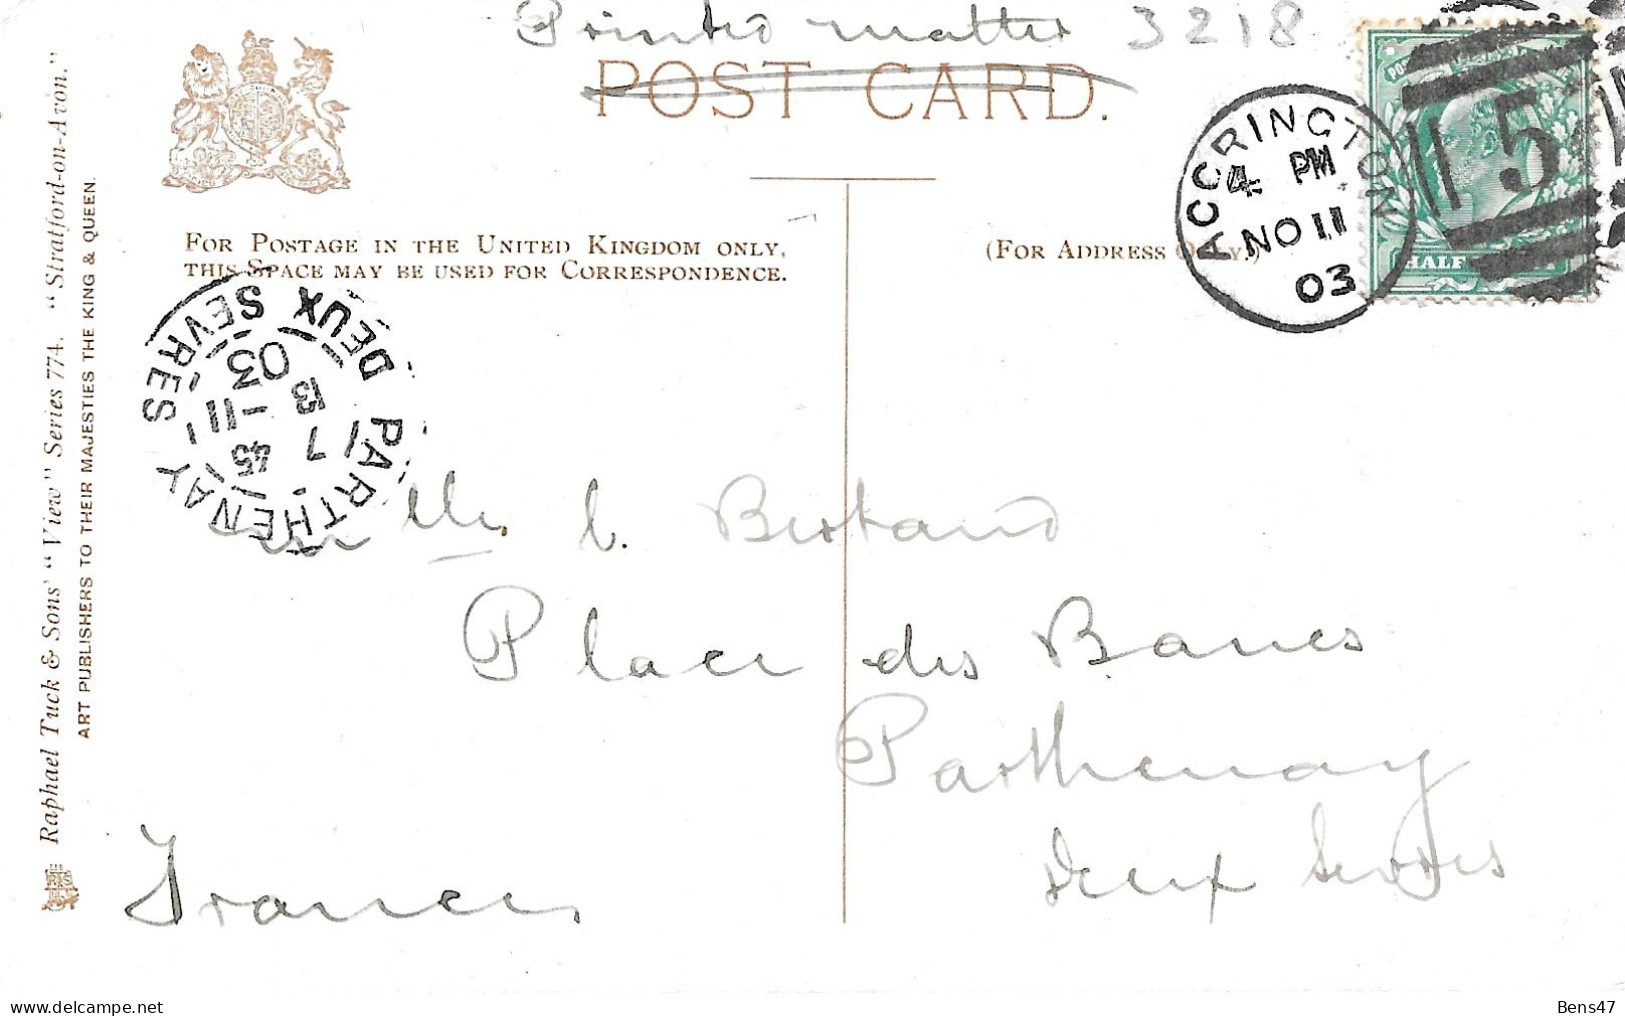 Printed matter 3218
POST CARD.
FOR POSTAGE IN THE UNITED KINGDOM ONLY,
THIS SPACE MAY BE USED FOR CORRESPONDENCE.
(FOR ADDRESS ONLY.)
ACCRINGTON
4 PM
NO 11
03
5
HALF
PARTHENAY
DEUX SEVRES
7 45
13 -11
03
Bertrand
Place des Bancs
Parthenay
Deux Sevres
France
Raphael Tuck & Sons' "View" Series 774. "Stratford-on-Avon."
ART PUBLISHERS TO THEIR MAJESTIES THE KING & QUEEN.
Bens47